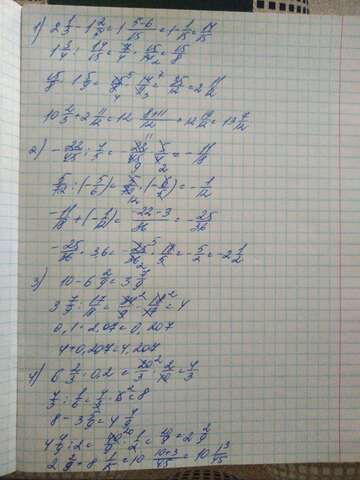 1) 2 1/3 - 1 2/5 = 1 5-6/15 = 1 - 1/15 = 14/15
1 3/4 : 14/15 = 7/4 · 15/14 = 15/8
15/8 · 1 5/9 = 15/8 · 14/9 = 35/12 = 2 11/12
10 2/3 + 2 11/12 = 12 8+11/12 = 12 19/12 = 13 7/12
2) - 22/45 : 4/5 = - 22/45 · 5/4 = - 11/18
5/72 : (- 5/6) = 5/72 · (- 6/5) = - 1/12
- 11/18 + (- 1/12) = -22-3/36 = - 25/36
- 25/36 · 3,6 = - 25/36 · 18/5 = - 5/2 = -2 1/2
3) 10 - 6 2/9 = 3 7/9
3 7/9 : 17/18 = 34/9 · 18/17 = 4
0,1 · 2,07 = 0,207
4 + 0,207 = 4,207
4) 6 2/3 · 0,2 = 20/3 · 2/10 = 4/3
4/3 : 1/6 = 4/3 · 6 = 8
8 - 3 5/9 = 4 4/9
4 4/9 : 2 = 40/9 · 1/2 = 20/9 = 2 2/9
2 2/9 + 8 1/15 = 10 10+3/45 = 10 13/45